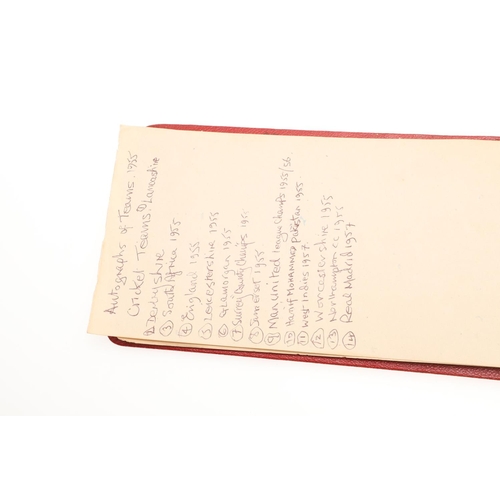 Autographs of Teams. 1955
Cricket Teams ① Lancashire
② Derbyshire
③ South Africa 1955
④ England 1955
⑤ Leicestershire 1955
⑥ Glamorgan 1955
⑦ Surrey County Champs 1955
⑧ Somerset 1955
⑨ Man United league Champs 1955/56
⑩ Hanif Mohammed Pakistan 1955
⑪ West Indies 1957
⑫ Worcestershire 1955
⑬ Northampton CC 1955
⑭ Real Madrid 1957